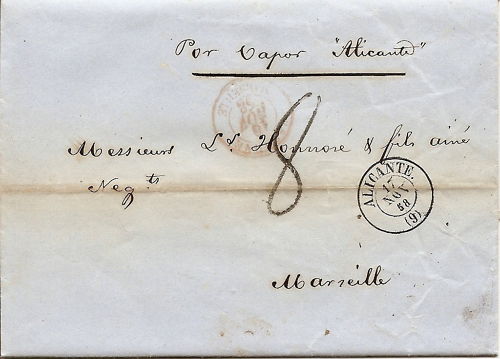 Por Vapor "Alicante"
8
Messieurs Ls. Honnoré & fils ainé
Negts
ALICANTE.
17
NOV
58
(9)
Marseille